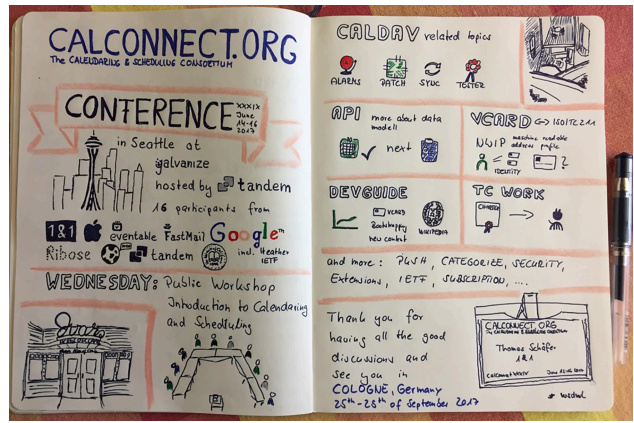 CALCONNECT.ORG
The CALENDARING & SCHEDULING CONSORTIUM
CONFERENCE
XXXIX
June
14-16
2017
in Seattle at
galvanize
hosted by tandem
16 participants from
1&1 eventable FastMail Google
Ribose tandem incl. Heather
IETF
WEDNESDAY: Public Workshop
Introduction to Calendaring
and Scheduling
CALDAV related topics
ALARMS PATCH SYNC TESTER
API more about data
modell
next
VCARD <-> ISO/TC211
NWIP machine readable
address profile
IDENTITY
?
DEVGUIDE
VCARD
Bootstrapping
new content
WIKIPEDIA
TC WORK
CHARTER
and more: PUSH, CATEGORIZE, SECURITY,
Extensions, IETF, SUBSCRIPTION, ....
Thank you for
having all the good
discussions and
see you in
COLOGNE, Germany
25th-28th of September 2017
CALCONNECT.ORG
Thomas Schäfer
1&1